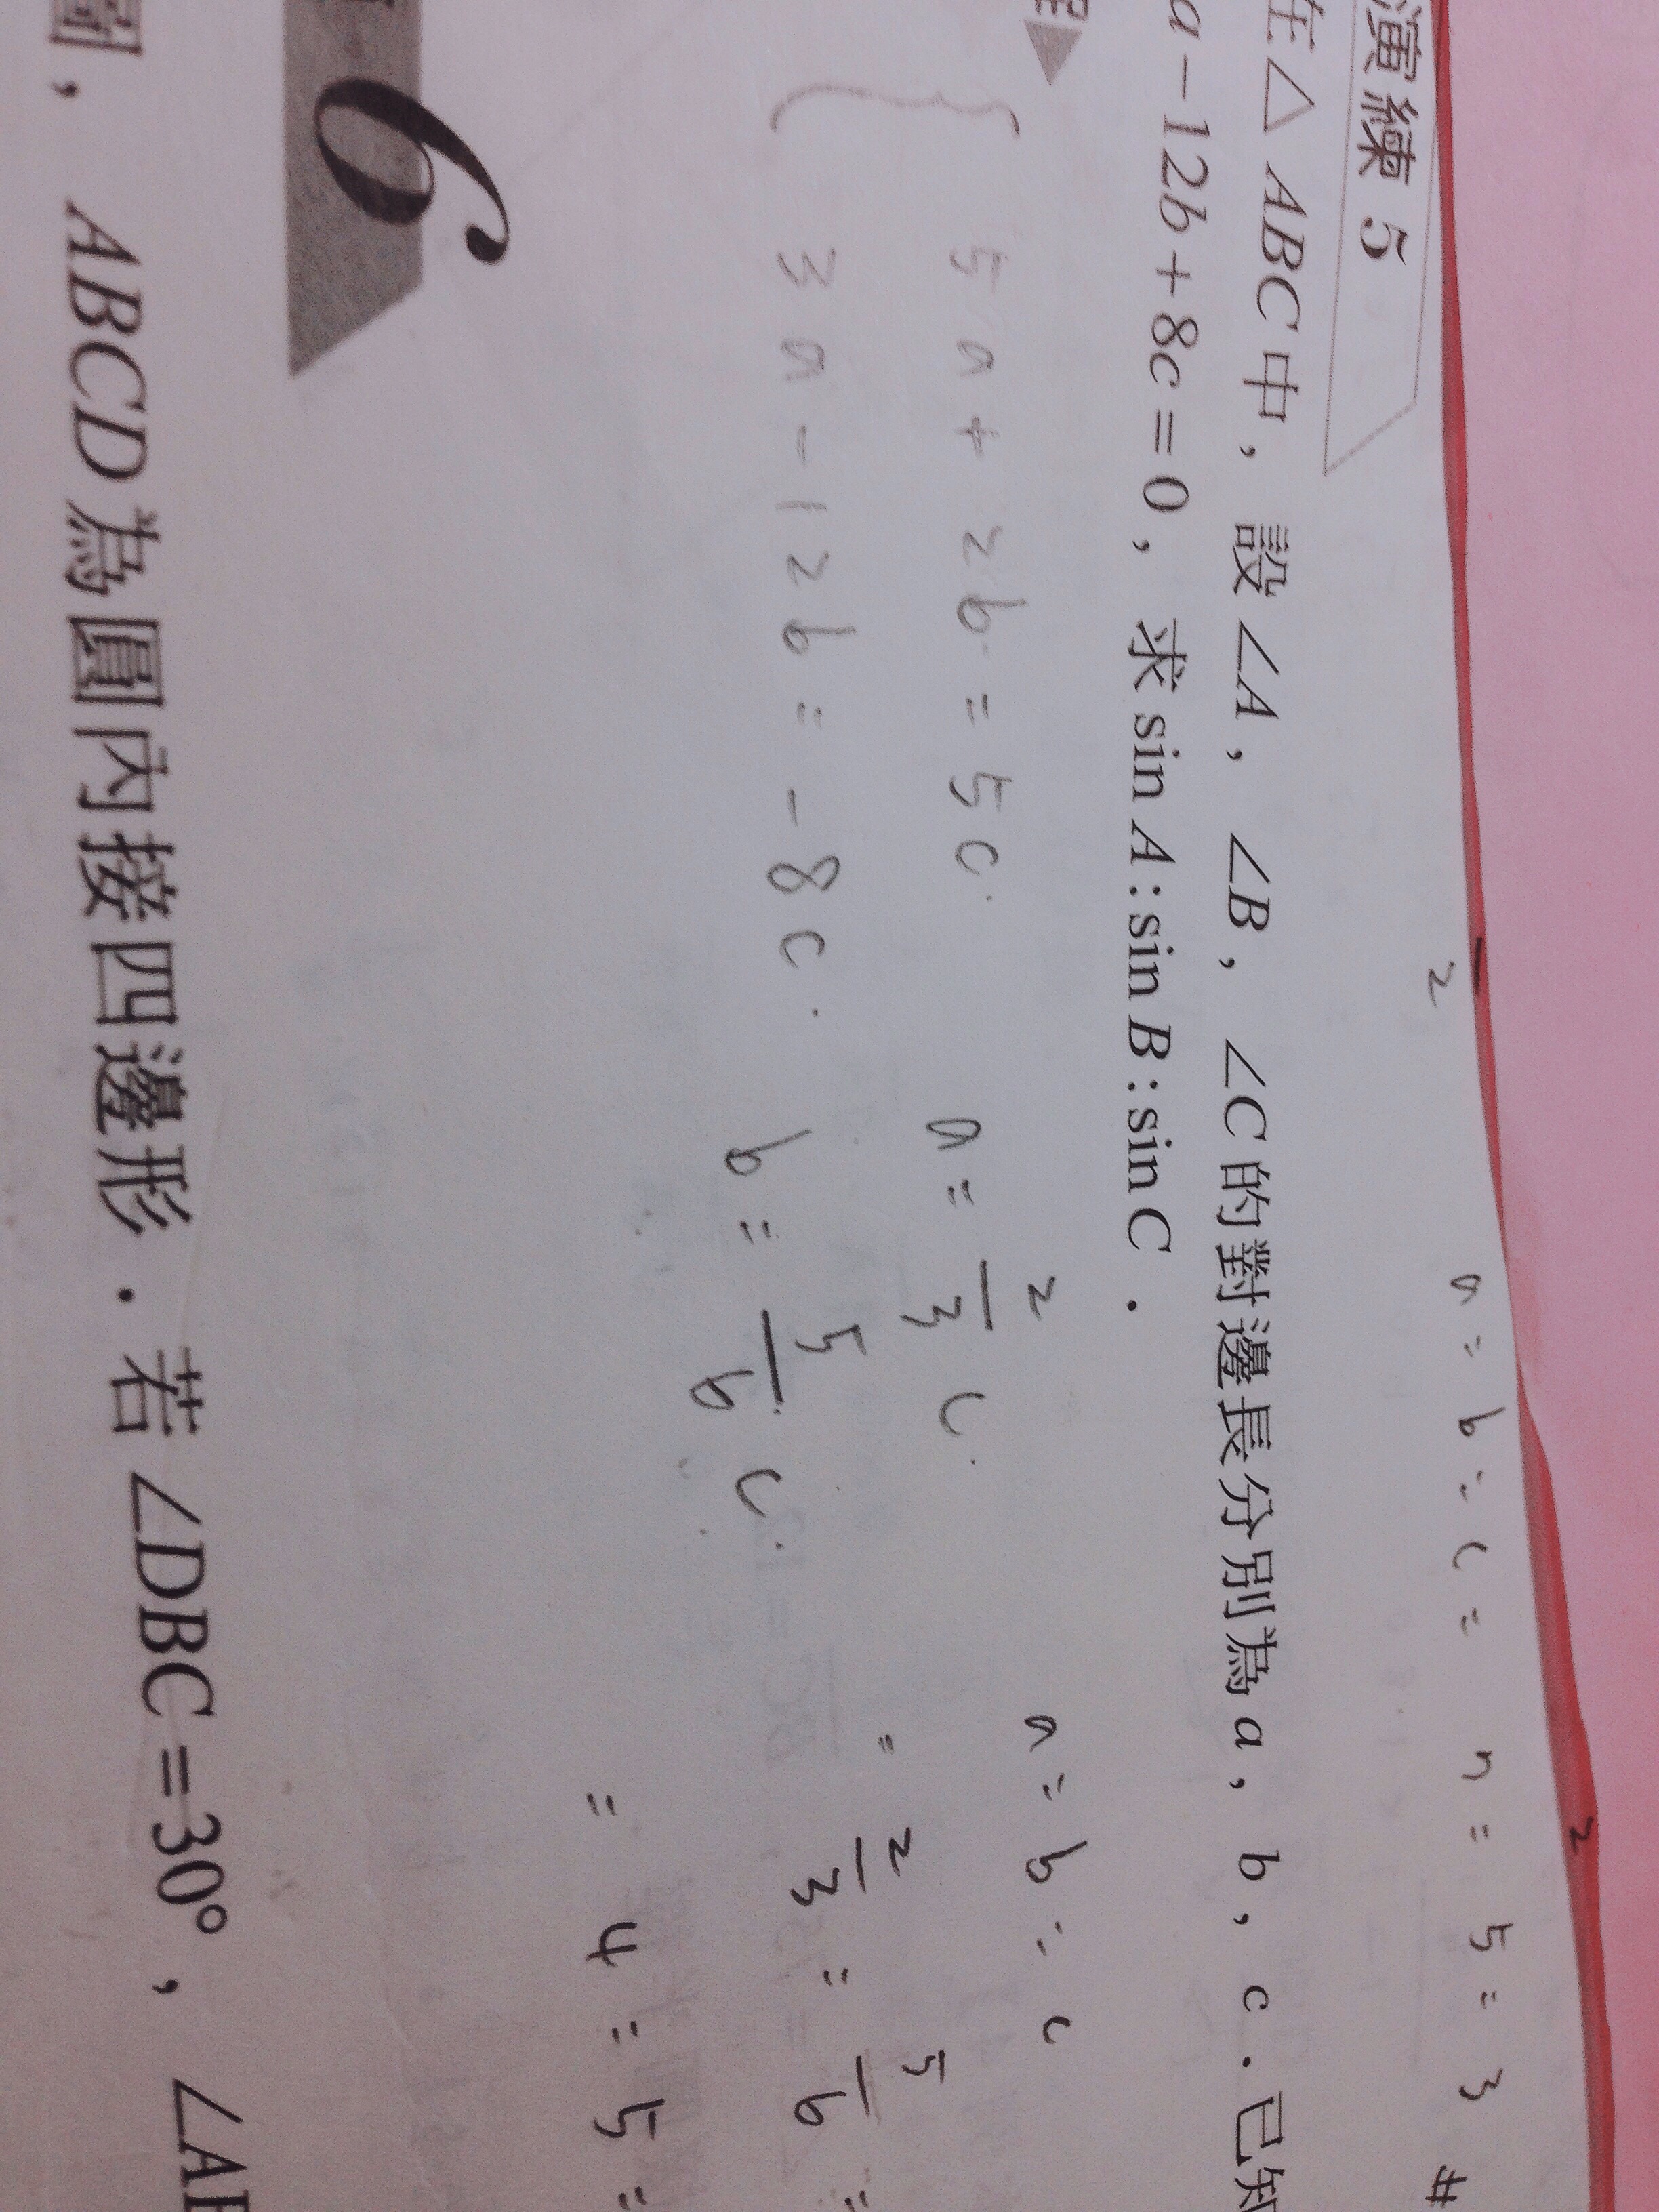 a = b = c = n = 5 = 3 #
2
2
演練 5
在△ABC中，設∠A，∠B，∠C的對邊長分別為a，b，c．已知
a－12b＋8c＝0，求sin A:sin B:sin C．
5a + 2b = 5c
3a - 12b = -8c
a = 2/3 c
b = 5/6 c
a = b = c
= 2/3 = 5/6 =
= 4 = 5 =
6
圖，ABCD為圓內接四邊形．若∠DBC＝30°，∠AB